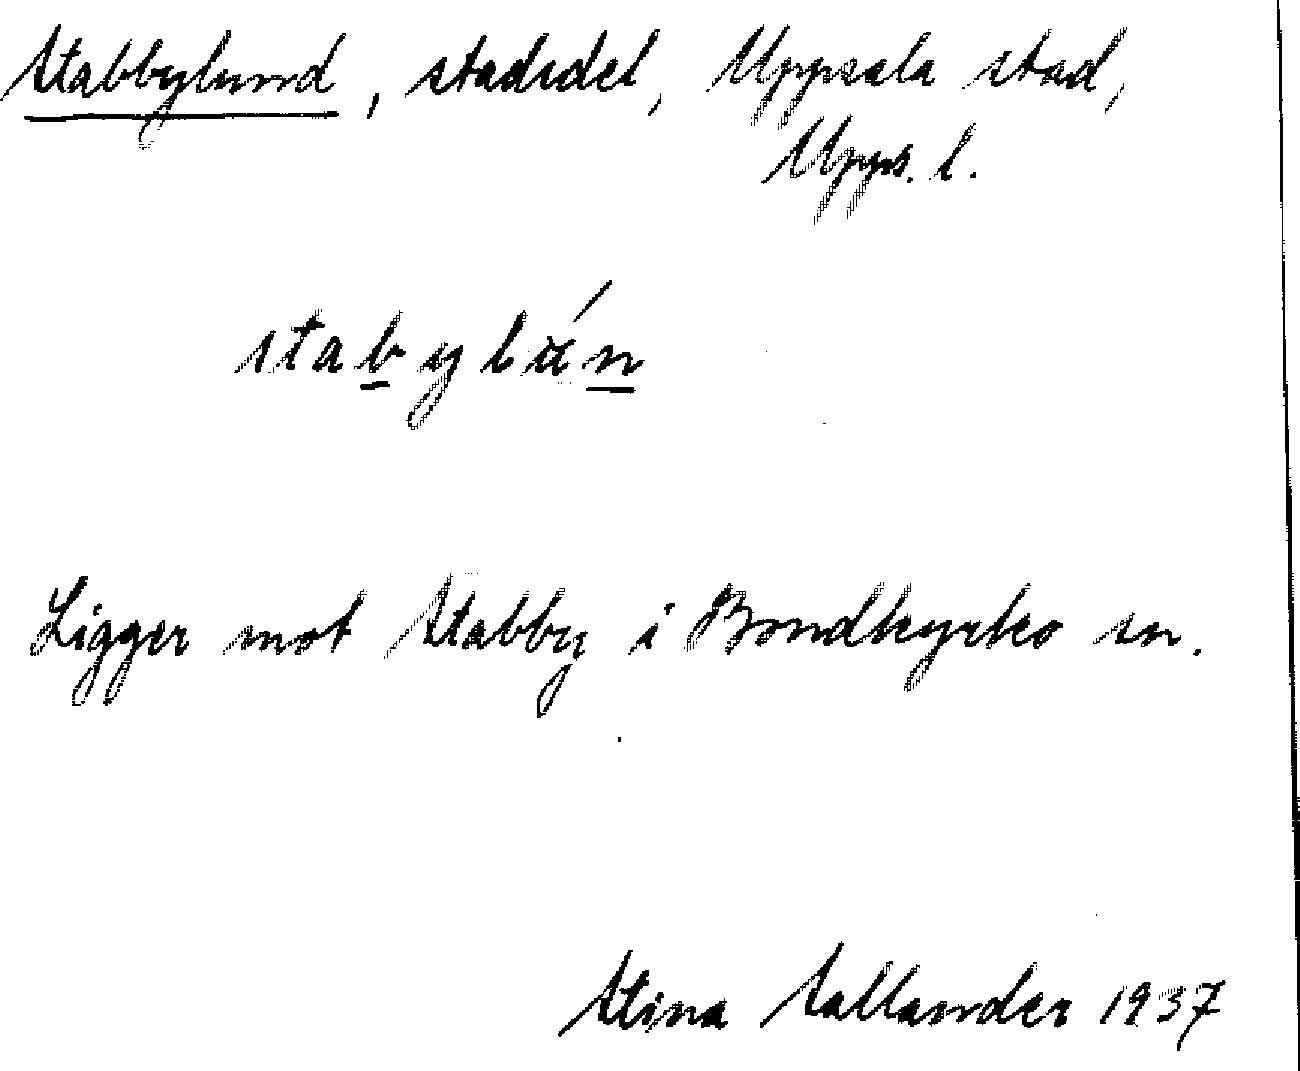 Stabbylund, stadsdel, Uppsala stad,
Upps. l.
stabylún
Ligger mot Stabby i Bondkyrko sn.
Stina Sallander 1937